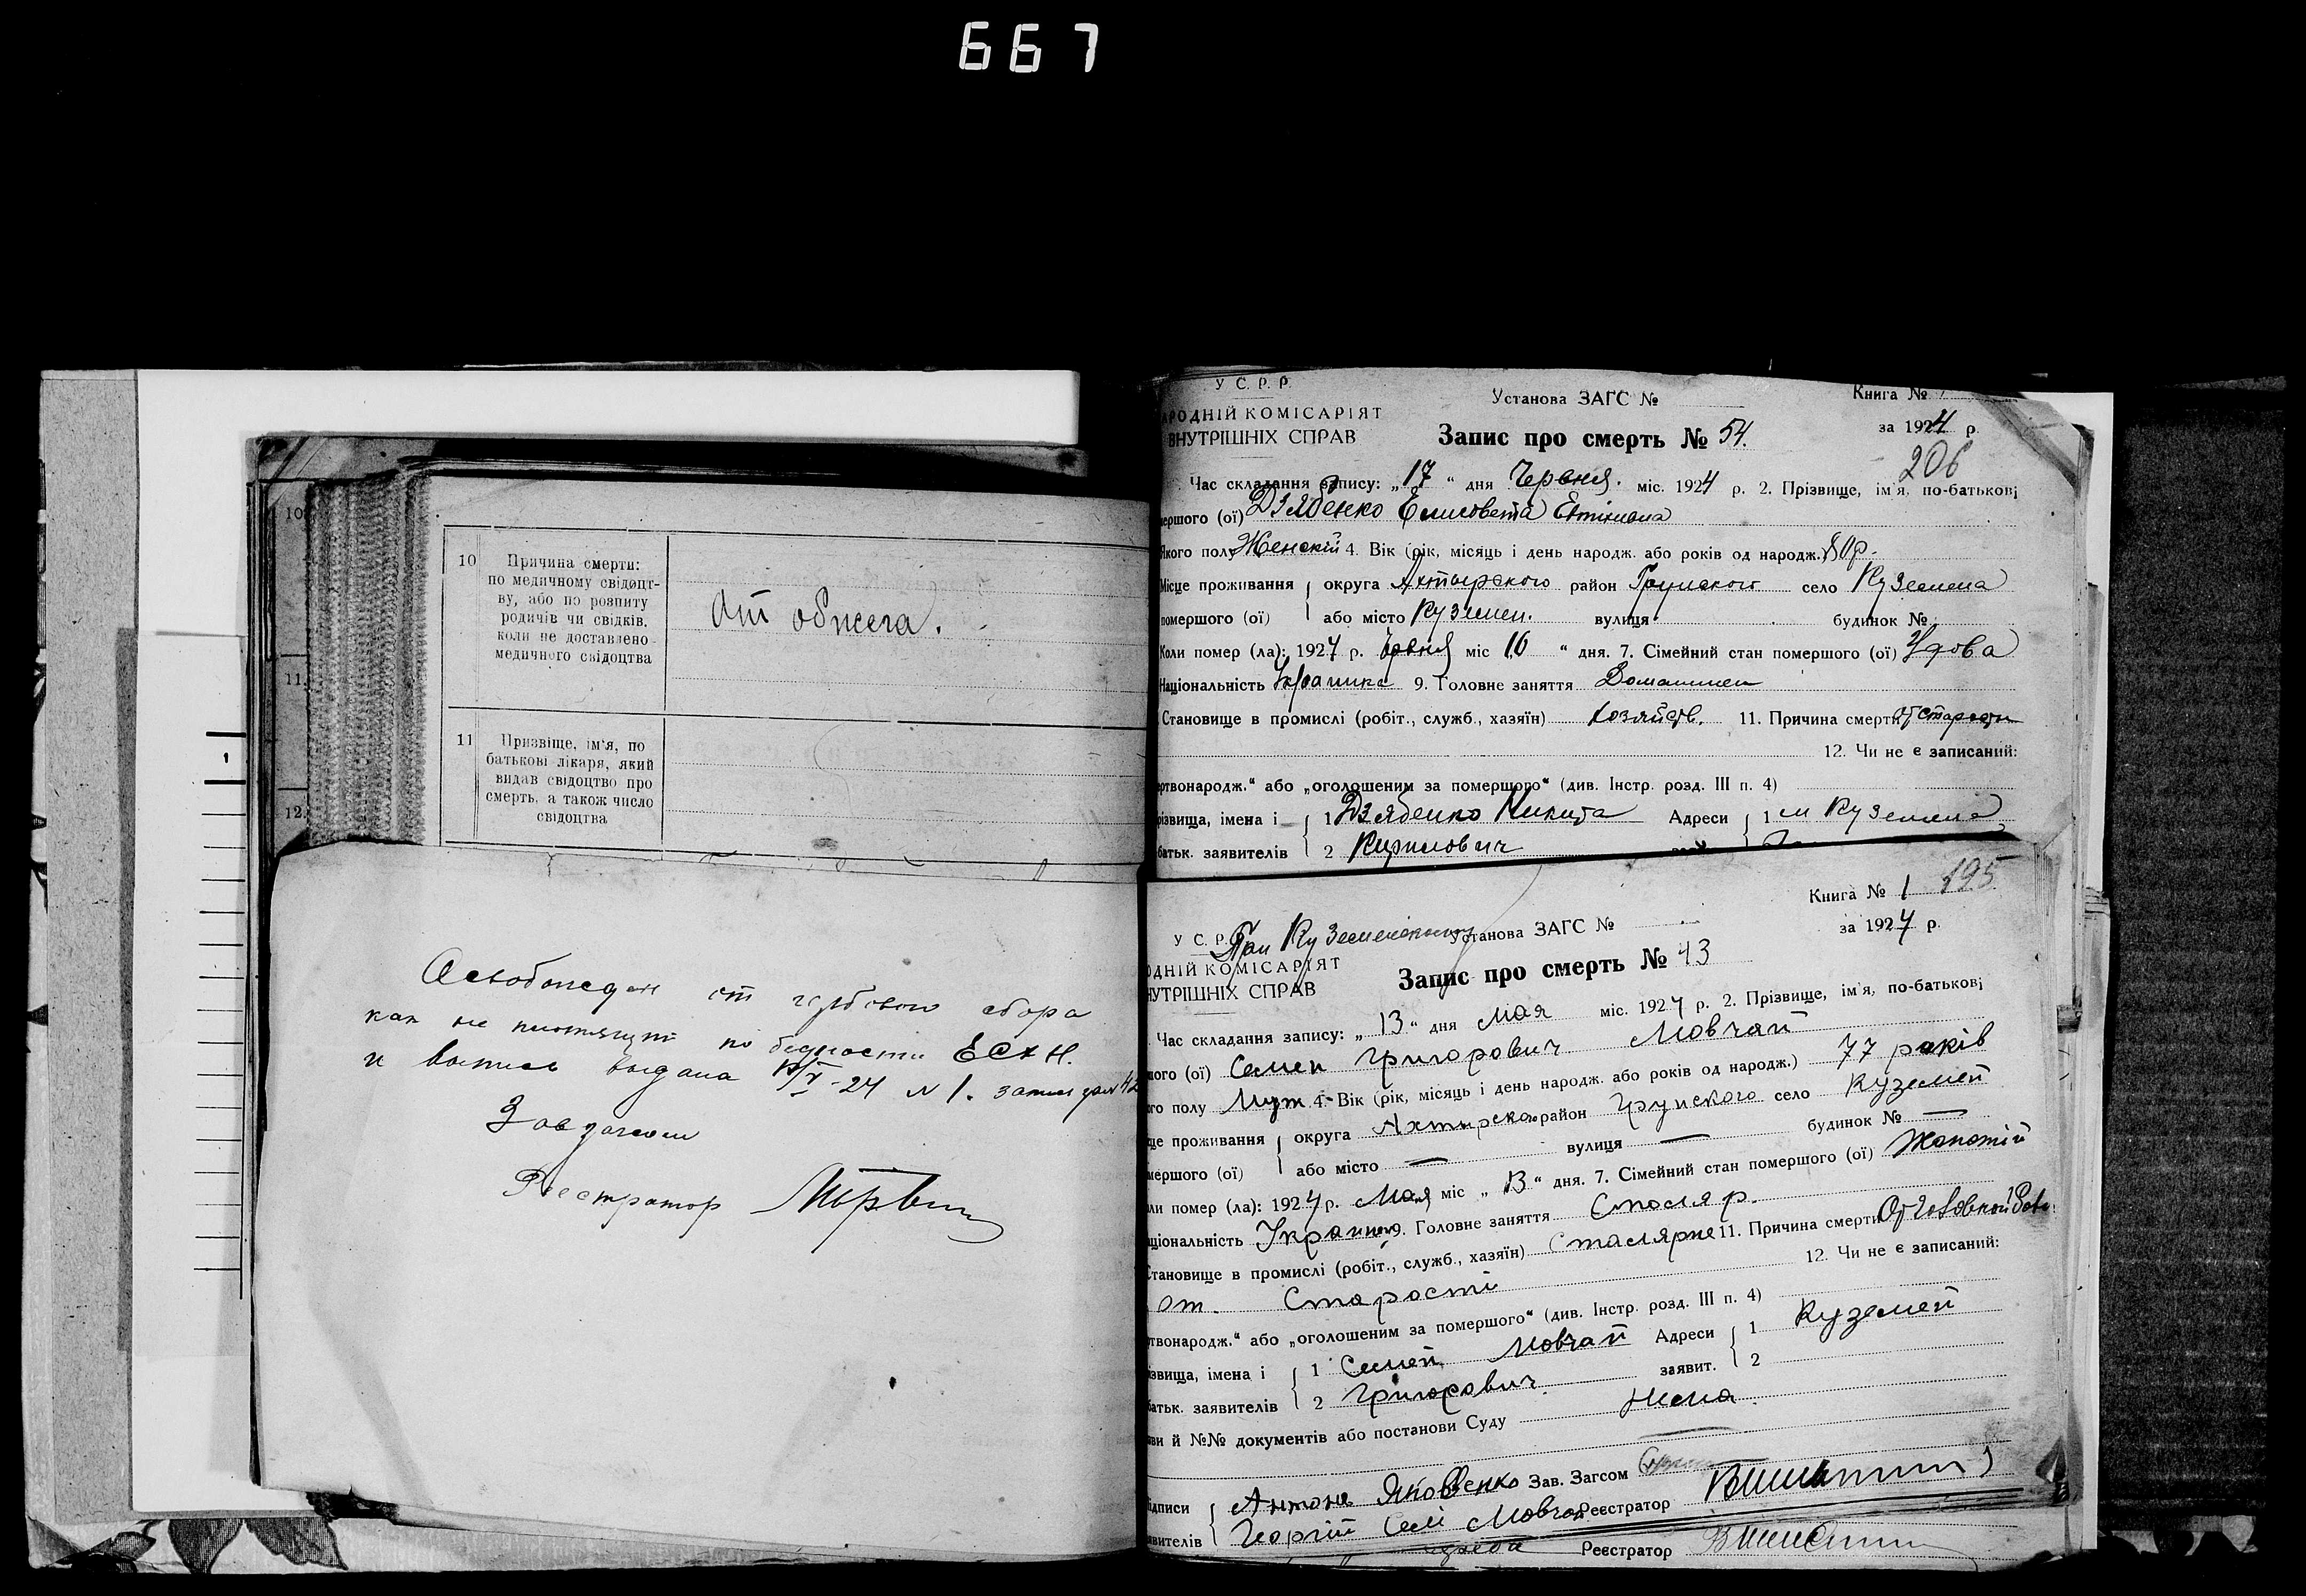 667
10
11.
12.
1
10 Причина смерти:
по медичному свідоцт-
ву, або по розпиту
родичів чи свідків,
коли не доставлено
медичного свідоцтва
От обжега.
11 Призвіще, ім'я, по
батькові лікаря, який
видав свідоцтво про
смерть, а також число
свідоцтва
Освобожден от гербового сбора
как не по бедности ЕСХН.
и выпись выдана 13/V-24 N 1.
Завзагсом
Реестратор
У С. Р. Р.
АРОДНІЙ КОМІСАРІЯТ
ВНУТРІШНІХ СПРАВ
Установа ЗАГС №
Книга №
Запис про смерть № 54.
за 1924 р.
206
Час складання запису: „17“ дня Червня. міс. 1924 р. 2. Прізвище, ім'я, по-батькові
мершого (ої) Дзябенко Елисовета
Якого полу Женскій 4. Вік (рік, місяць і день народж. або років од народж.) 80р.
Місце проживання округа Ахтырского район Грунского село Куземена
помершого (ої) або місто Куземен. вулиця будинок №
Коли помер (ла): 1924 р. Червня міс 16 “ дня. 7. Сімейний стан помершого (ої) Удова
Національність Украинка 9. Головне заняття Домашнеи
Становище в промислі (робіт., служб., хазяїн) хозяйств. 11. Причина смерти От старости
12. Чи не є записаний:
ертвонародж.“ або „оголошеним за померщого“ (див. Інстр. розд. III п. 4)
різвища, імена і 1 Дзябенко Никита Адреси 1 Куземена
батьк. заявителів 2 Кирилович
Книга № 1 195
У С. Р. Р. При Куземенском Установа ЗАГС №
за 1924 р.
ОДНІЙ КОМІСАРІЯТ
НУТРІШНІХ СПРАВ
Запис про смерть № 43
Час складання запису: „13“ дня мая міс. 1924 р. 2. Прізвище, ім'я, по-батькові
шого (ої) Семен Григорович Мовчан
го полу Муж 4. Вік (рік, місяць і день народж. або років од народж.) 77 років
це проживання округа Ахтирско район Грунского село Куземен
мершого (ої) або місто — вулиця — будинок № —
ли помер (ла): 1924 р. Мая міс „13“ дня. 7. Сімейний стан помершого (ої) Жонатій
ціональність Украин 9. Головне заняття Столяр.
Становище в промислі (робіт., служб., хазяїн) Сталярне 11. Причина смерти От головной
От. Старости 12. Чи не є записаний:
ртвонародж.“ або „оголошеним за померщого“ (див. Інстр. розд. III п. 4)
ізвища, імена і 1 Семен Мовчан Адреси 1 Куземен
батьк. заявителів 2 Григорович заявит. 2
ви й №№ документів або постанови Суду Нема
ідписи Антона Яковенко Зав. Загсом
явителів Георгій Сем Мовчан Реєстратор
Реєстратор